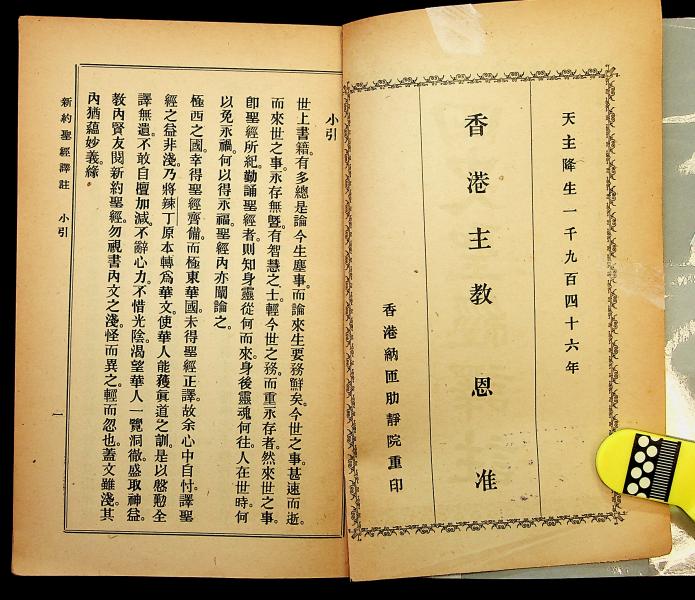 天主降生一千九百四十六年
香港主教恩准
香港納匝肋靜院重印
小引
世上書籍。有多總是論今生塵事。而論來生要務鮮矣。今世之事。甚速而逝。
而來世之事。永存無曁。有智慧之士。輕今世之務。而重永存者。然來世之事。
卽聖經所紀。勤誦聖經者。則知身靈從何而來。身後靈魂何往。人在世時何
以免永禍。何以得永福。聖經內亦闡論之。
極西之國。幸得聖經齊備。而極東華國。未得聖經正譯。故余心中自忖。譯聖
經之益非淺。乃將辣丁原本轉爲華文。使華人能獲眞道之訓。是以慇懃全
譯無遺。不敢自擅加減。不辭心力。不惜光陰。渴望華人一覽洞徹。盛取神益。
敎內賢友閱新約聖經。勿視書內文之淺。怪而異之。輕而忽也。蓋文雖淺。其
內猶蘊妙義絲。
新約聖經譯註 小引
一